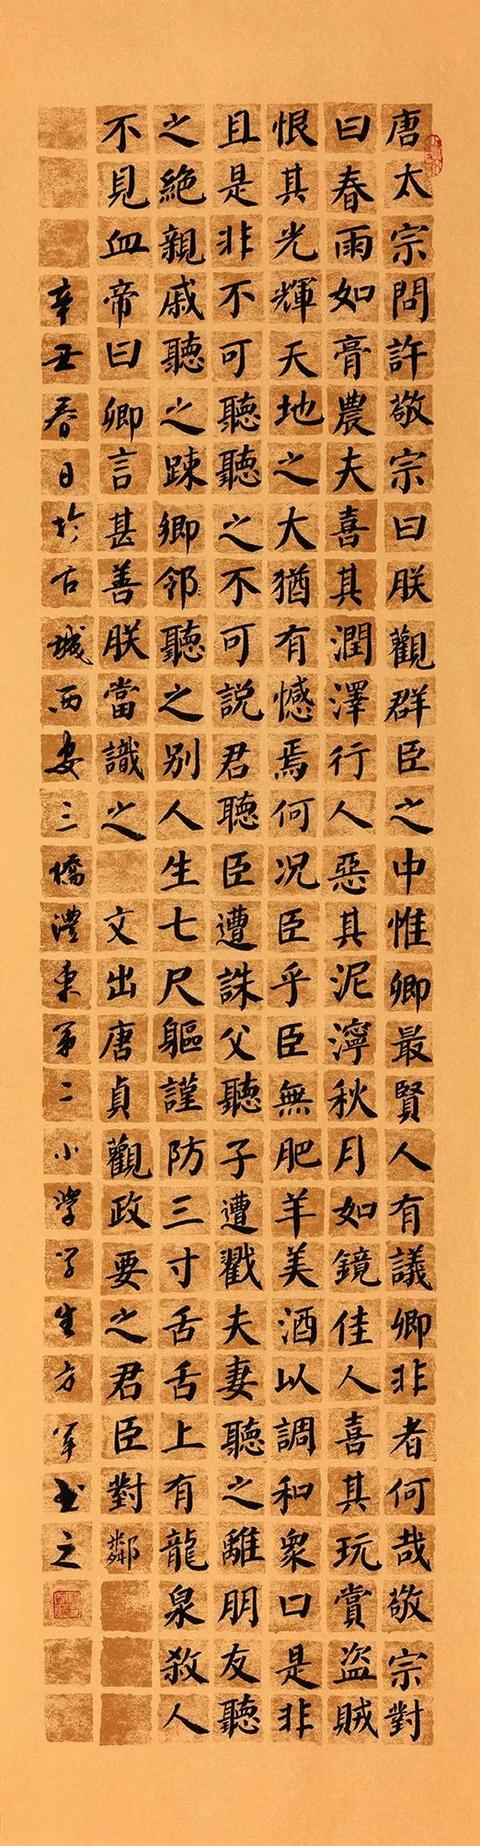 唐太宗問許敬宗曰朕觀群臣之中惟卿最賢人有議卿非者何哉敬宗對
曰春雨如膏農夫喜其潤澤行人惡其泥濘秋月如鏡佳人喜其玩賞盜賊
恨其光輝天地之大猶有憾焉何況臣乎臣無肥羊美酒以調和衆口是非
且是非不可聽聽之不可説君聽臣遭誅父聽子遭戮夫妻聽之離朋友聽
之絕親戚聽之踈卿邻聽之别人生七尺軀謹防三寸舌舌上有龍泉殺人
不見血帝曰卿言甚善朕當識之 文出唐貞觀政要之君臣對鄰
辛丑春日於古城西安三橋灃東第二小學生方軍書之